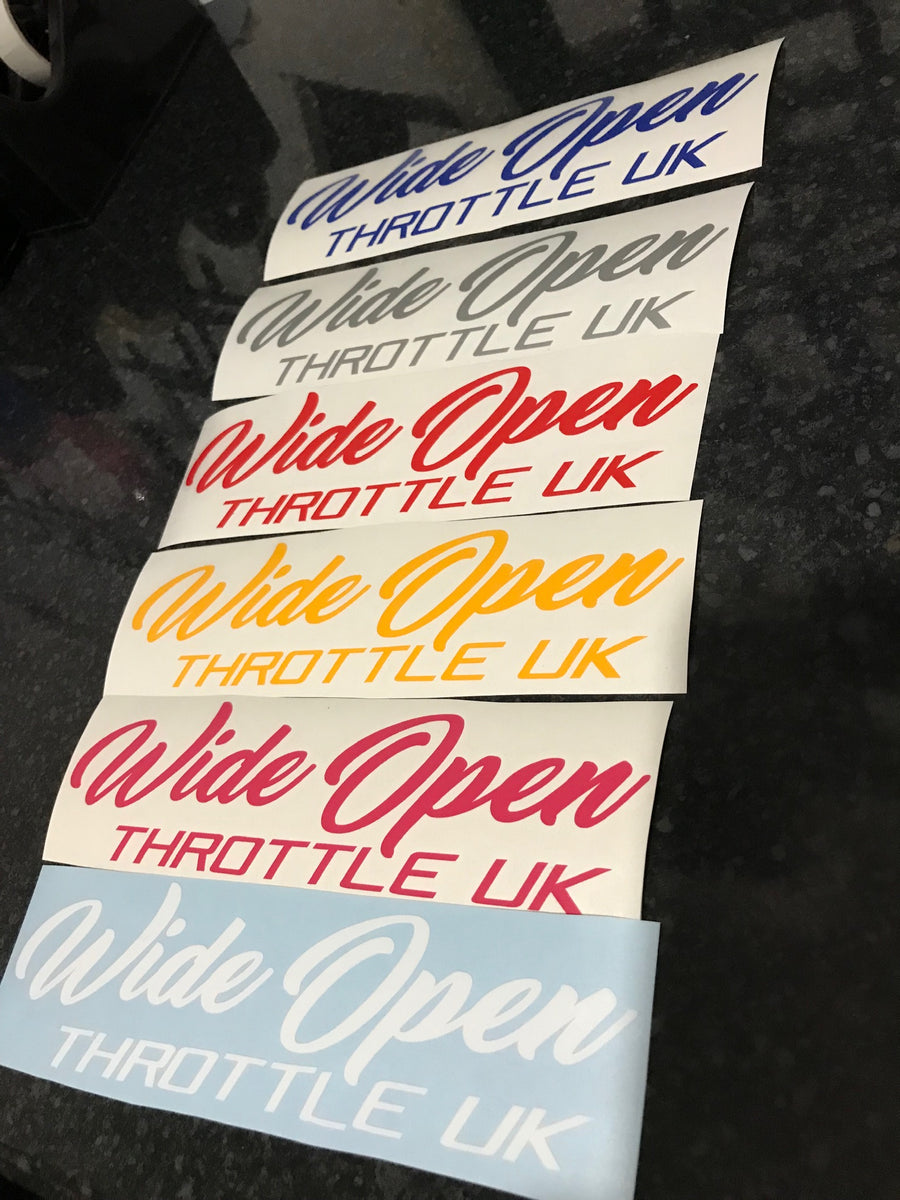 Wide Open
THROTTLE UK
Wide Open
THROTTLE UK
Wide Open
THROTTLE UK
Wide Open
THROTTLE UK
Wide Open
THROTTLE UK
Wide Open
THROTTLE UK